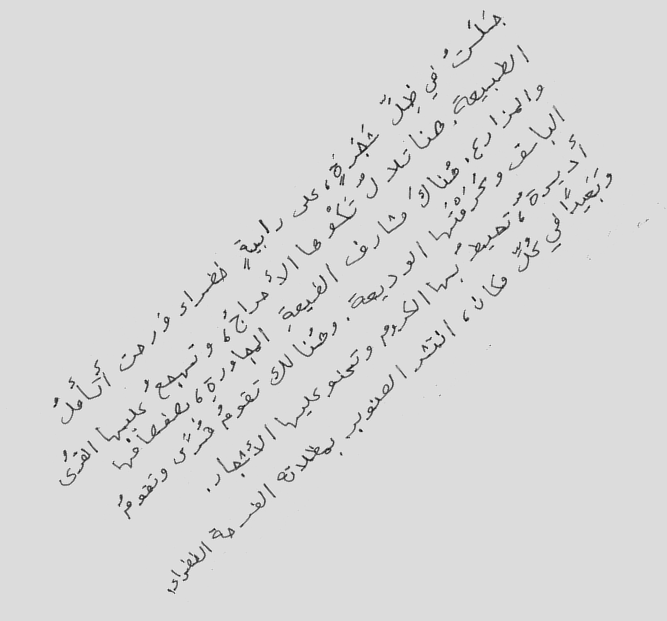 جَلَسْتُ فِي ظِلِّ شَجَرَةٍ، على رابيةٍ خضراء ورحت أتأملُ
الطبيعة. هنا تلالٌ تَكْسُوها الأحراجُ، وتهجعُ عليها القرى
والمزارع. هُناكَ مشارف الضيعةِ المجاورةِ، بصفصافها
الباسق وغُرْفَتُها الوديعة. وهُنالك تقومُ قُرًى وتقومُ
أديرة، تحيط بُها الكروم وتحنو عليها الأشجار.
وبَعَيدًا في كُلِّ مكان، انتشر الصنوبر بمظلاته الفرحة الخضراء